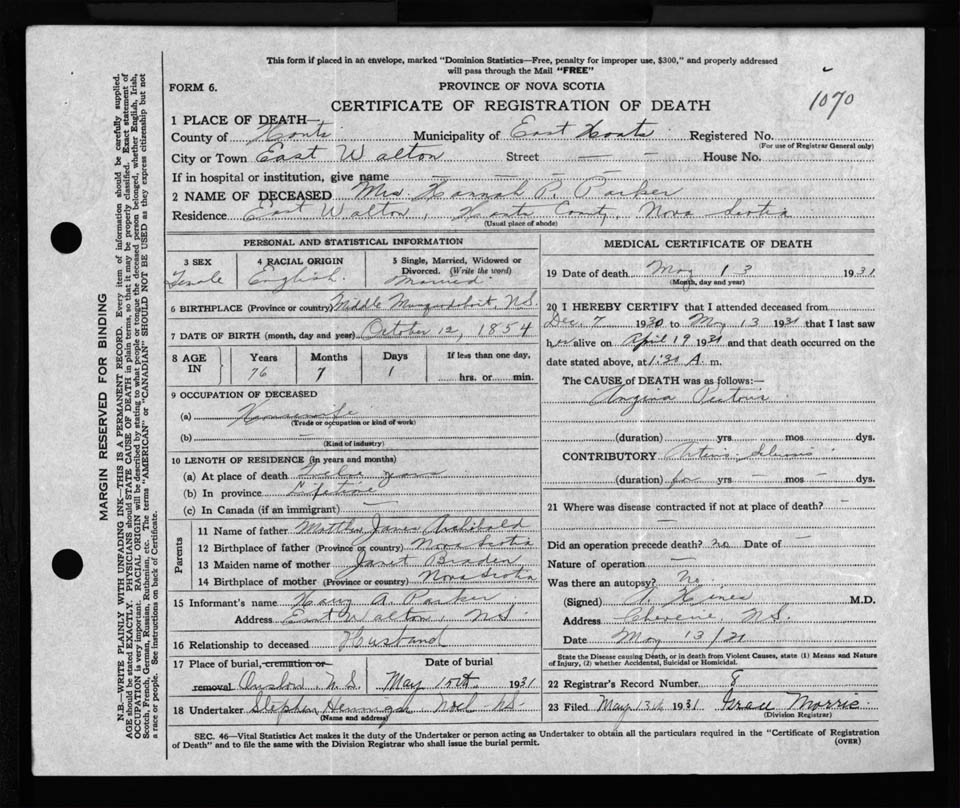 This form if placed in an envelope, marked "Dominion Statistics—Free, penalty for improper use, $300," and properly addressed
will pass through the Mail "FREE"
FORM 6.
PROVINCE OF NOVA SCOTIA
1070
CERTIFICATE OF REGISTRATION OF DEATH
1 PLACE OF DEATH—
County of Hants Municipality of East Hants Registered No.
(For use of Registrar General only)
City or Town East Walton Street — — House No.
If in hospital or institution, give name — — — —
2 NAME OF DECEASED Mrs. Hannah P. Parker
Residence East Walton, Hants County, Nova Scotia
(Usual place of abode)
MARGIN RESERVED FOR BINDING
N.B.—WRITE PLAINLY WITH UNFADING INK—THIS IS A PERMANENT RECORD. Every item of information should be carefully supplied.
AGE should be stated EXACTLY. PHYSICIANS should STATE CAUSE OF DEATH in plain terms, so that it may be properly classified. Exact statement of
OCCUPATION is very important. RACIAL ORIGIN will be described by stating to what people or tongue the deceased person belonged, whether English, Irish,
Scotch, French, German, Russian, Ruthenian, etc. The terms "AMERICAN" or "CANADIAN" SHOULD NOT BE USED as they express citizenship but not
a race or people. See instructions on back of Certificate.
PERSONAL AND STATISTICAL INFORMATION
3 SEX
Female
4 RACIAL ORIGIN
English
5 Single, Married, Widowed or
Divorced. (Write the word)
Married
6 BIRTHPLACE (Province or country) Middle Musquodoboit, N.S.
7 DATE OF BIRTH (month, day and year) October 12, 1854
8 AGE IN
Years Months Days If less than one day,
76 7 1 hrs. or min.
9 OCCUPATION OF DECEASED
(a) Housewife
(Trade or occupation or kind of work)
(b) —
(Kind of industry)
10 LENGTH OF RESIDENCE (in years and months)
(a) At place of death years
(b) In province Lifetime
(c) In Canada (if an immigrant) —
Parents
11 Name of father Matthew James Archibald
12 Birthplace of father (Province or country) Nova Scotia
13 Maiden name of mother Janet Braden
14 Birthplace of mother (Province or country) Nova Scotia
15 Informant's name A. Parker
Address East Walton, N.S.
16 Relationship to deceased Husband
17 Place of burial, cremation or
removal Onslow, N.S.
Date of burial
May 15th, 1931
18 Undertaker Stephen Noel N.S.
(Name and address)
MEDICAL CERTIFICATE OF DEATH
19 Date of death May 13 1931
(Month, day and year)
20 I HEREBY CERTIFY that I attended deceased from
Dec. 7 1930 to May 13 1931 that I last saw
her alive on April 19 1931 and that death occurred on the
date stated above, at 1:30 A. m.
The CAUSE OF DEATH was as follows:—
Angina Pectoris
(duration) yrs. — mos — dys.
CONTRIBUTORY Arterio Sclerosis
(duration) yrs — mos — dys.
21 Where was disease contracted if not at place of death? —
—
Did an operation precede death? no Date of —
Nature of operation —
Was there an autopsy? No
(Signed) M.D.
Address N.S.
Date May 13/31
State the Disease causing Death, or in death from Violent Causes, state (1) Means and Nature
of Injury, (2) whether Accidental, Suicidal or Homicidal.
22 Registrar's Record Number 8
23 Filed May 13th 1931 Morris
(Division Registrar)
SEC. 46—Vital Statistics Act makes it the duty of the Undertaker or person acting as Undertaker to obtain all the particulars required in the "Certificate of Registration
of Death" and to file the same with the Division Registrar who shall issue the burial permit.
(OVER)